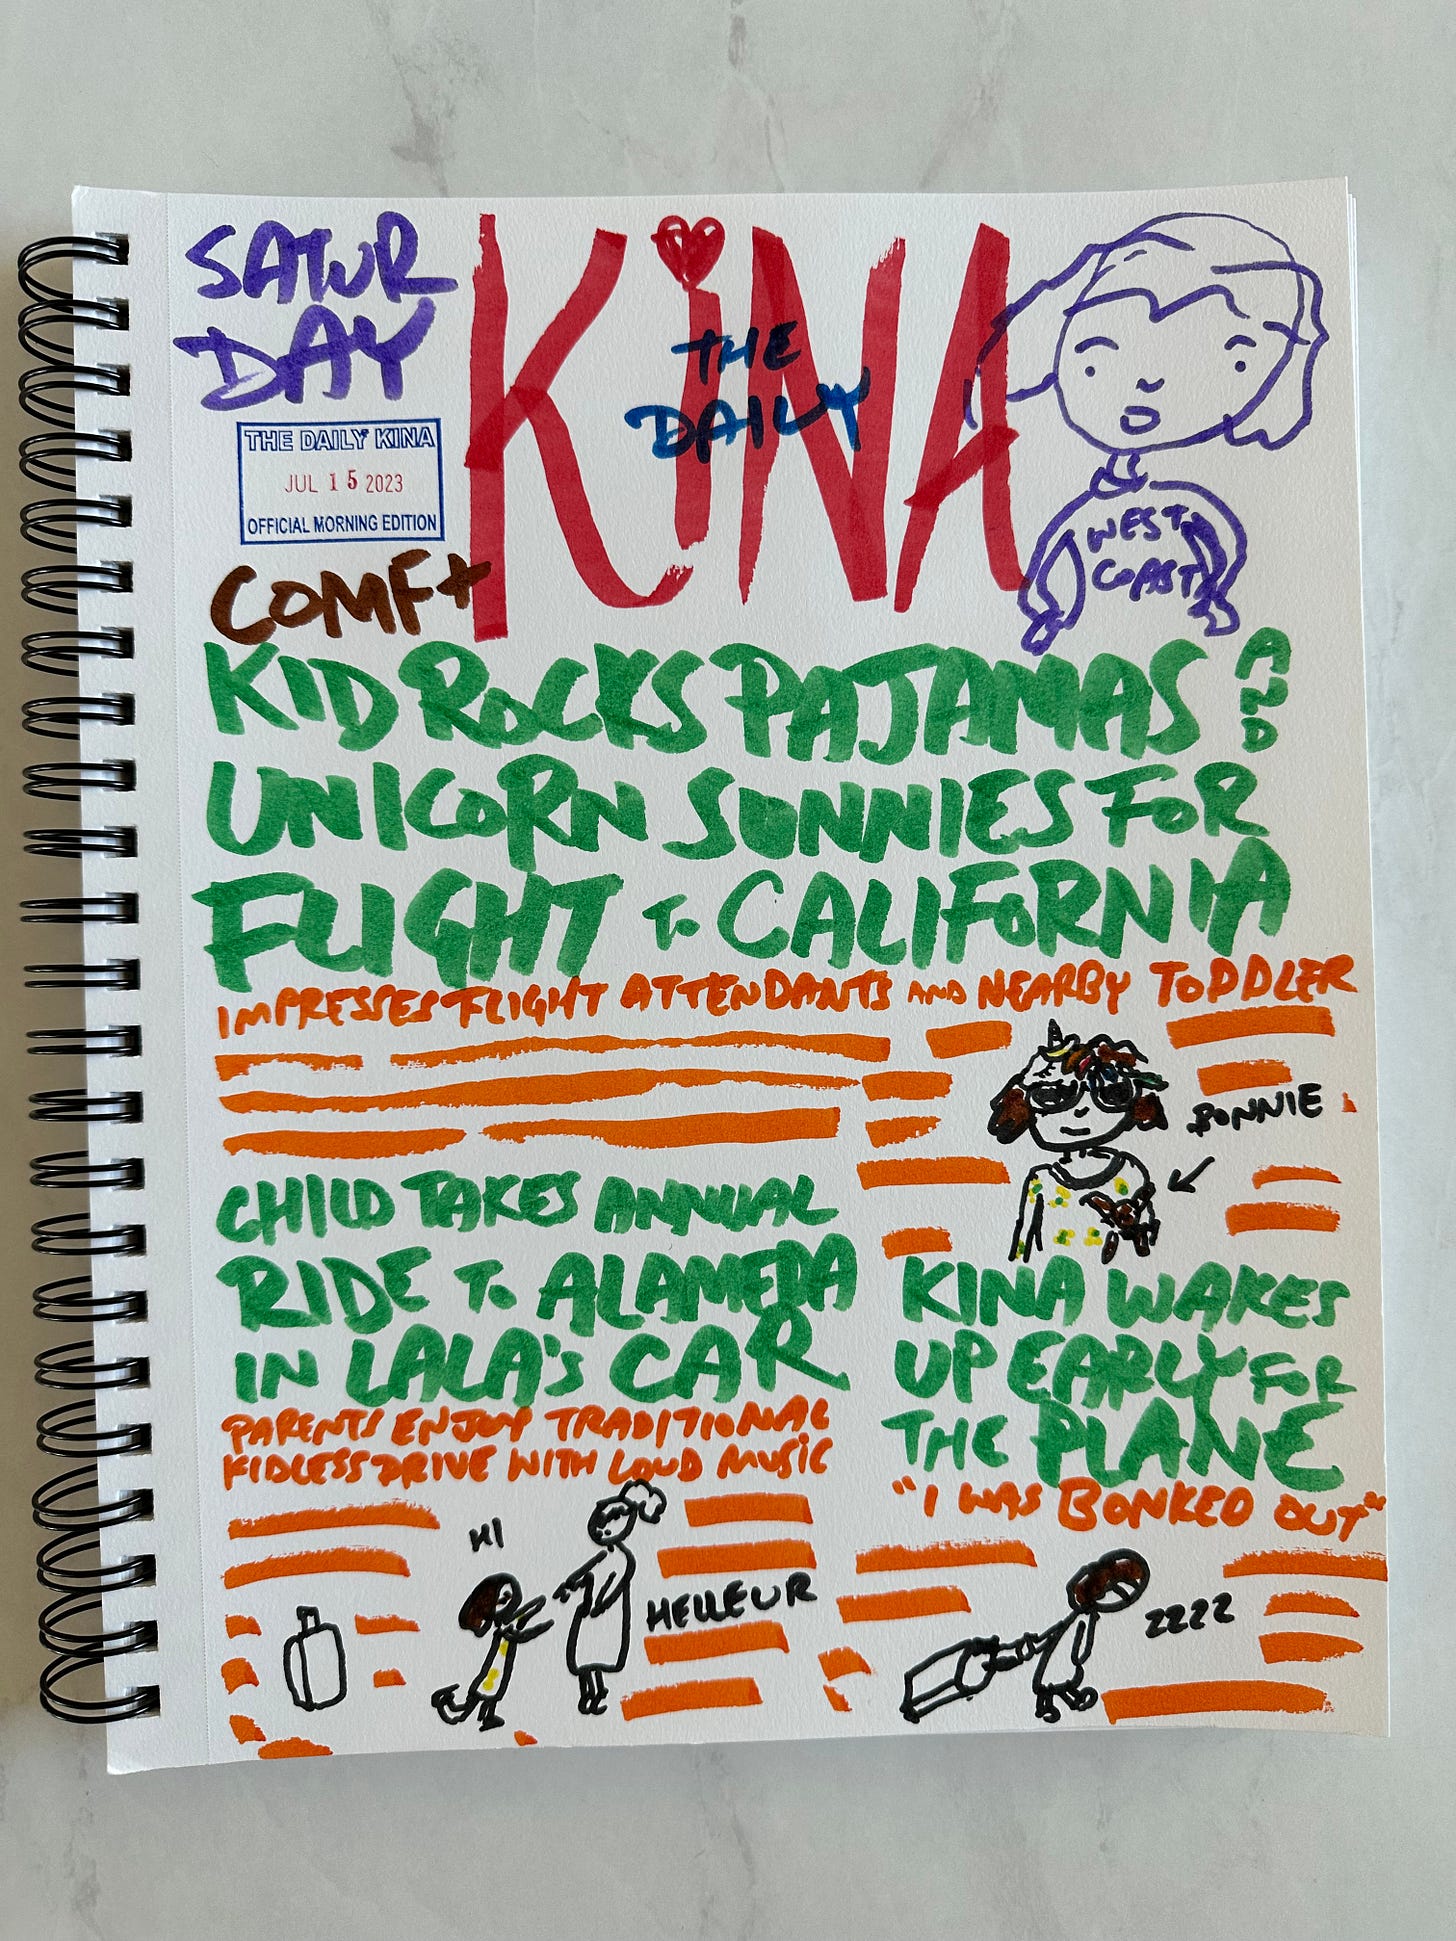 SATUR
DAY
THE DAILY KINA
JUL 15 2023
OFFICIAL MORNING EDITION
COMFY
KiNA
THE
DAILY
WEST
COAST
KID ROCKS PAJAMAS AND
UNICORN SUNNIES FOR
FLIGHT TO CALIFORNIA
IMPRESSES FLIGHT ATTENDANTS AND NEARBY TODDLER
BONNIE
CHILD TAKES ANNUAL
RIDE TO ALAMEDA
IN LALA'S CAR
PARENTS ENJOY TRADITIONAL
KIDLESS DRIVE WITH LOUD MUSIC
HI
HELLEUR
KINA WAKES
UP EARLY FOR
THE PLANE
"I WAS BONKED OUT"
ZZZZ